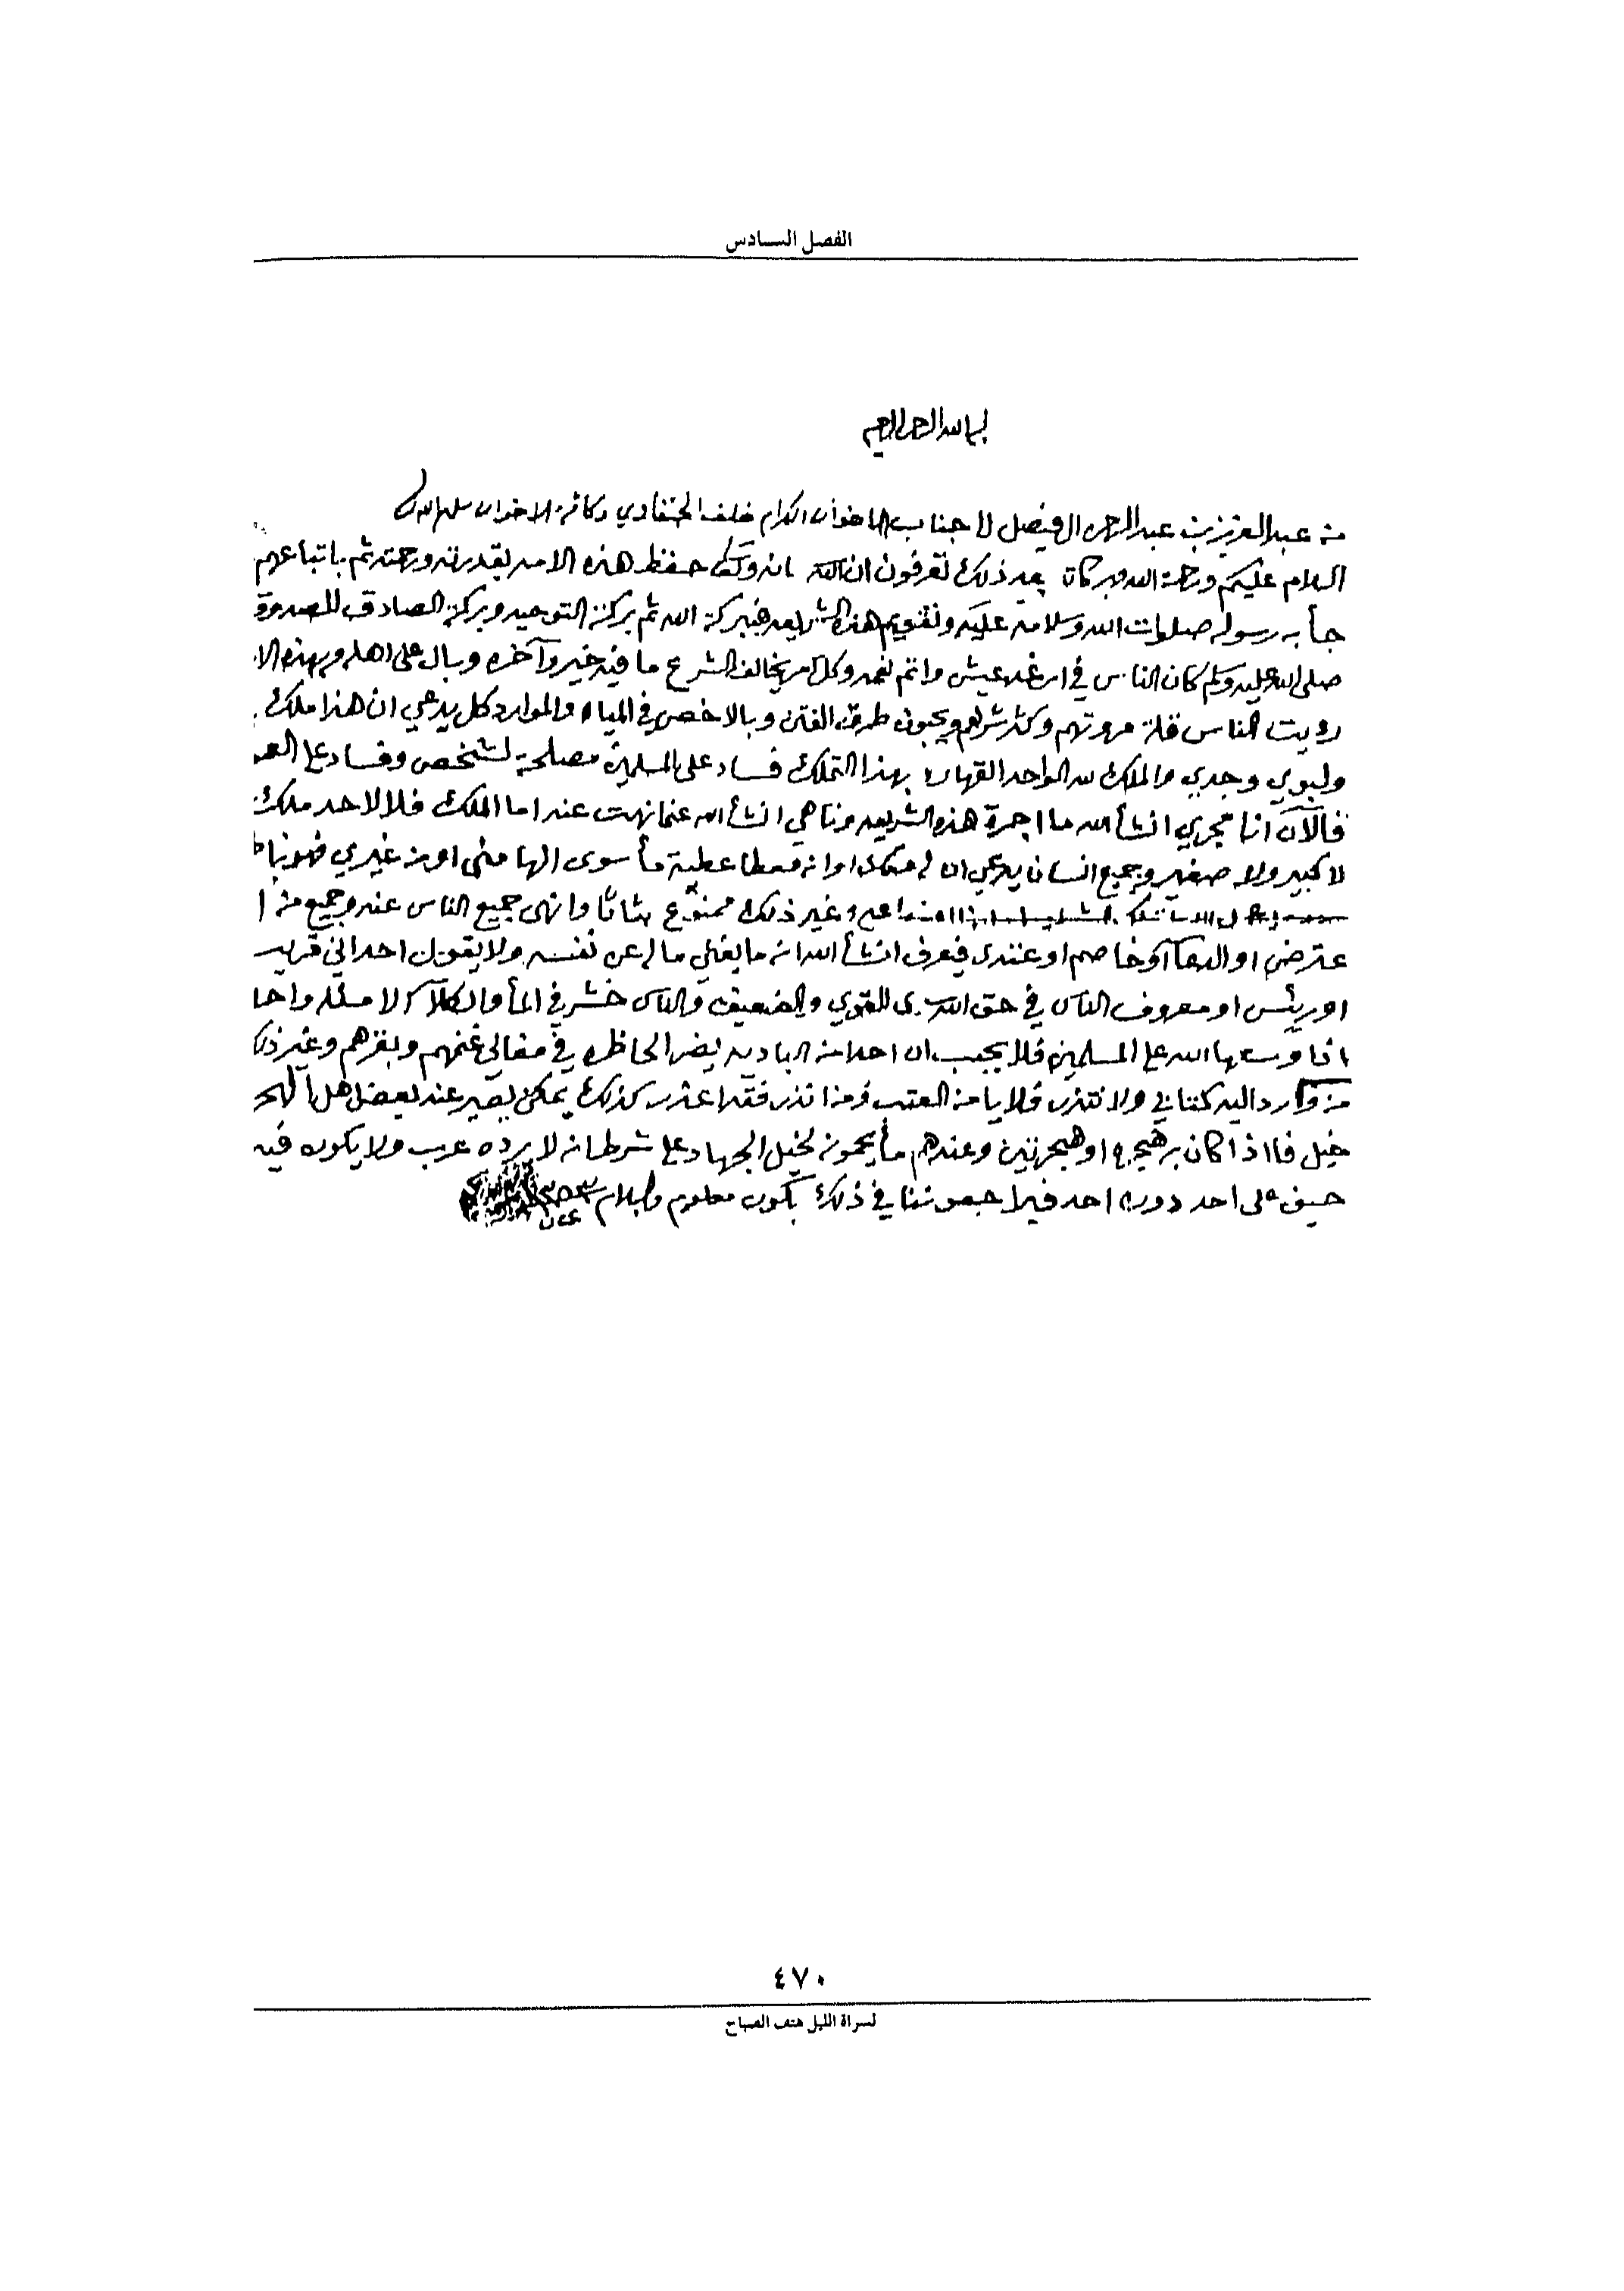 الفصل السادس
بسم الله الرحمن الرحيم
من عبدالعزيز بن عبدالرحمن ال فيصل الا جناب الاخوان الكرام خلف الخنفادي وكافة الاخوان سلمهم الله
السلام عليكم ورحمة الله وبركاته بعد ذلك تعرفون ان الله سبحانه وتعالى حفظ هذه الامه بقدرته ورحمته ثم باتباعهم
جأ به رسوله صلوات الله وسلامه عليه ولتقويم هذه الشريعه فببركة الله ثم بركة التوحيد وبركة الصادق المصدوق
صلى الله عليه وسلم كان الناس في ارغد عيش واتم نعمه وكل امر يخالف الشرع ما فيه خير وآخره وبال على اهله وبهذه الا
رويت الناس قلة مروتهم وكثر شرهم ويحبون طرق الفتن وبالاخص في المياه والموارد كل يدعي ان هذا ملك
ولبوي وجدي والملك لله الواحد القهار بهذا التملك فساد على المسلمين مصلحة لشخص وفساد على العمو
فالآن انا مجري انشأ الله ما اجرة هذه الشريعه وناهي انشأ الله عما نهت عنه اما الملك فلا لاحد ملك
لا كبير ولا صغير وجميع انسان يدعي ان له ملك او انه معطا عطية مأ سوى انها مني او من غيري فهو باط
وغير ذلك ممنوع بتاتاً وانهى جميع الناس عنه وجميع من ا
عترض او ادعآ او خاصم او عتدى فيعرف انشأ الله انه ما يغني ماله عن نفسه ولا يقول احد اني قريب
او رئيس او معروف الناس في حق الله سوى القوي والضعيف والناس خشر في المأ والكلآ الا مسئله واحد
اذا وسعها الله على المسلمين فلا يجب ان احد من الباديه يضر الحاظره في مفالي غنمهم وبقرهم وغير ذلك
من وارد اليه كتابي ولا نتذر فلا يامن العتب ومن انذر فقد اعذر كذلك يمكن يصير عند بعض اهل الهجر
خيل فلا اذا كان برهيجره او هيجرتين وعندهم مأ يحمونه لخيل الجهاد على شرط انه لا يرده عرب ولا يكون فيه
حيف على احد دون احد فيراجعوننا في ذلك يكون معلوم والسلام
٤٧٠
لسراة الليل هتف الصباح